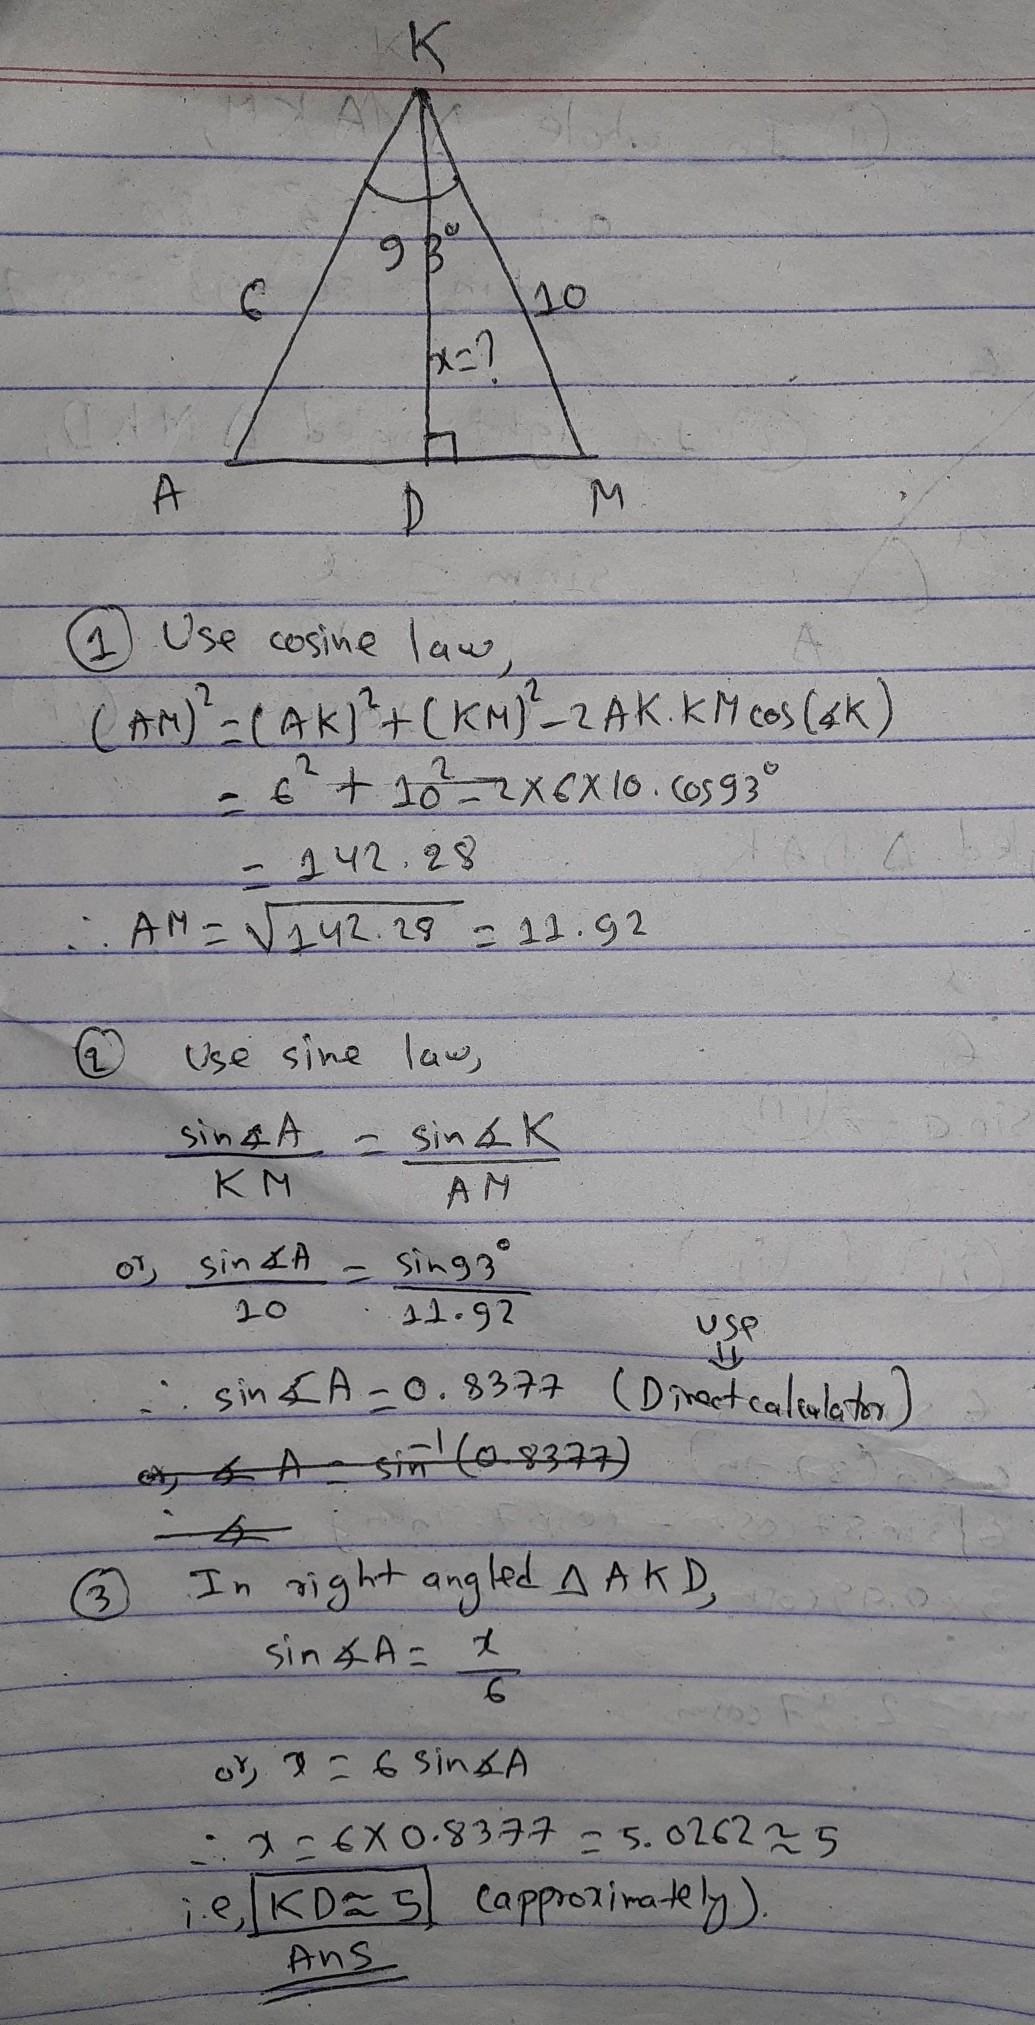 K
93°
6
10
x=?
A
D
M
① Use cosine law,
(AM)²=(AK)²+(KM)²-2AK.KM cos(∡K)
= 6² + 10² - 2×6×10. cos93°
= 142.28
∴ AM = √142.28 = 11.92
② Use sine law,
sin∡A / KM = sin∡K / AM
or, sin∡A / 10 = sin93° / 11.92
use
⇓
∴ sin∡A = 0.8377 (Direct calculator)
or, ∡A = sin⁻¹(0.8377)
∴ ∡
③ In right angled Δ AKD,
sin∡A = x / 6
or, x = 6 sin∡A
∴ x = 6×0.8377 = 5.0262 ≈ 5
i.e, KD ≈ 5 (approximately).
Ans